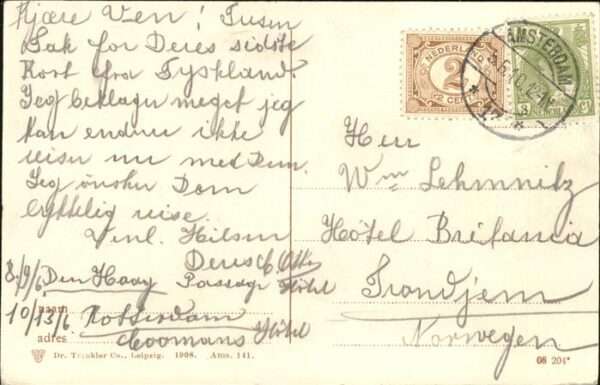 Kjære Ven! Tusin
Tak for Deres sidste
Kort fra Tyskland.
Jeg beklager meget jeg
kan endnu ikke
reise nu med Dem.
Jeg ønsker Dem
lykkelig reise.
Venl. Hilsen
Deres
8/9/6 Den Haag Passage Hôtel
10/13/6 Rotterdam
Coomans Hôtel
naam
adres
Dr. Trenkler Co., Leipzig. 1908. Ams. 141.
NEDERLAND
2
½ CENT
AMSTERDAM
Herr
Wm Lehmnitz
Hôtel Britania
Trondjem
Norwegen
08 204*